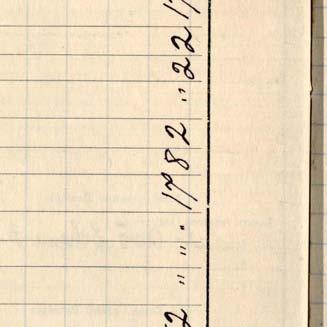 2 " " " 1782 " 221